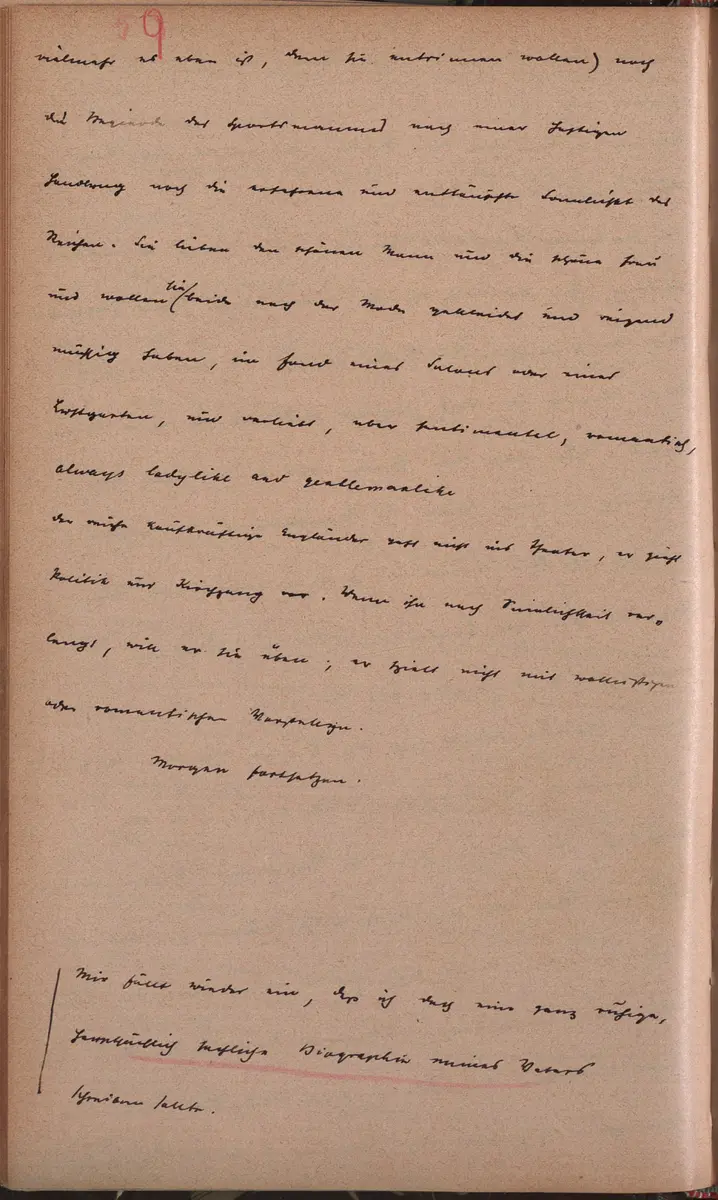 59
vielmehr es eben ist, dem sie entrinnen wollen) noch
die Begierde des Sportsmannes nach einer hastigen
Handlung noch die erfahrene und enttäuschte Sinnlichkeit des
Reichen. Sie lieben den schönen Mann und die schöne Frau
und wollen sie beide nach der Mode gekleidet und reizend
müssig haben, im fond eines Salons oder eines
Lustgarten, und verliebt, aber sentimental, romantisch,
always ladylike and gentlemanlike
der reiche kaufkräftige Engländer geht nicht ins Theater, er zieht
Politik und Kirchgang vor. Wenn ihn nach Sinnlichkeit ver-
langt, will er sie üben; er spielt nicht mit wollüstigen
oder romantischen Vorstellgn.
Morgen fortsetzen.
Mir fällt wieder ein, dass ich doch eine ganz ruhige,
hauptsächlich sachliche Biographie meines Vaters
schreiben sollte.